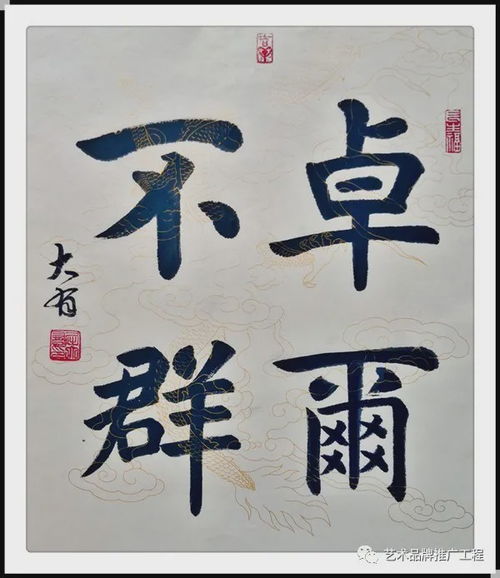 卓爾
不群
大有
艺术品牌推广工程